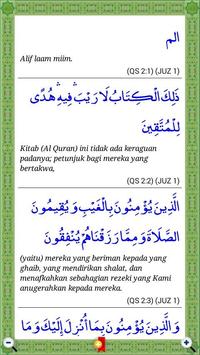 الم
Alif laam miim.
(QS 2:1) (JUZ 1)
ذَلِكَ الْكِتَابُ لَا رَيْبَ ۛ فِيهِ ۛ هُدًى
لِلْمُتَّقِينَ
Kitab (Al Quran) ini tidak ada keraguan
padanya; petunjuk bagi mereka yang
bertakwa,
(QS 2:2) (JUZ 1)
الَّذِينَ يُؤْمِنُونَ بِالْغَيْبِ وَيُقِيمُونَ
الصَّلَاةَ وَمِمَّا رَزَقْنَاهُمْ يُنْفِقُونَ
(yaitu) mereka yang beriman kepada yang
ghaib, yang mendirikan shalat, dan
menafkahkan sebahagian rezeki yang Kami
anugerahkan kepada mereka.
(QS 2:3) (JUZ 1)
وَالَّذِينَ يُؤْمِنُونَ بِمَا أُنْزِلَ إِلَيْكَ وَمَا